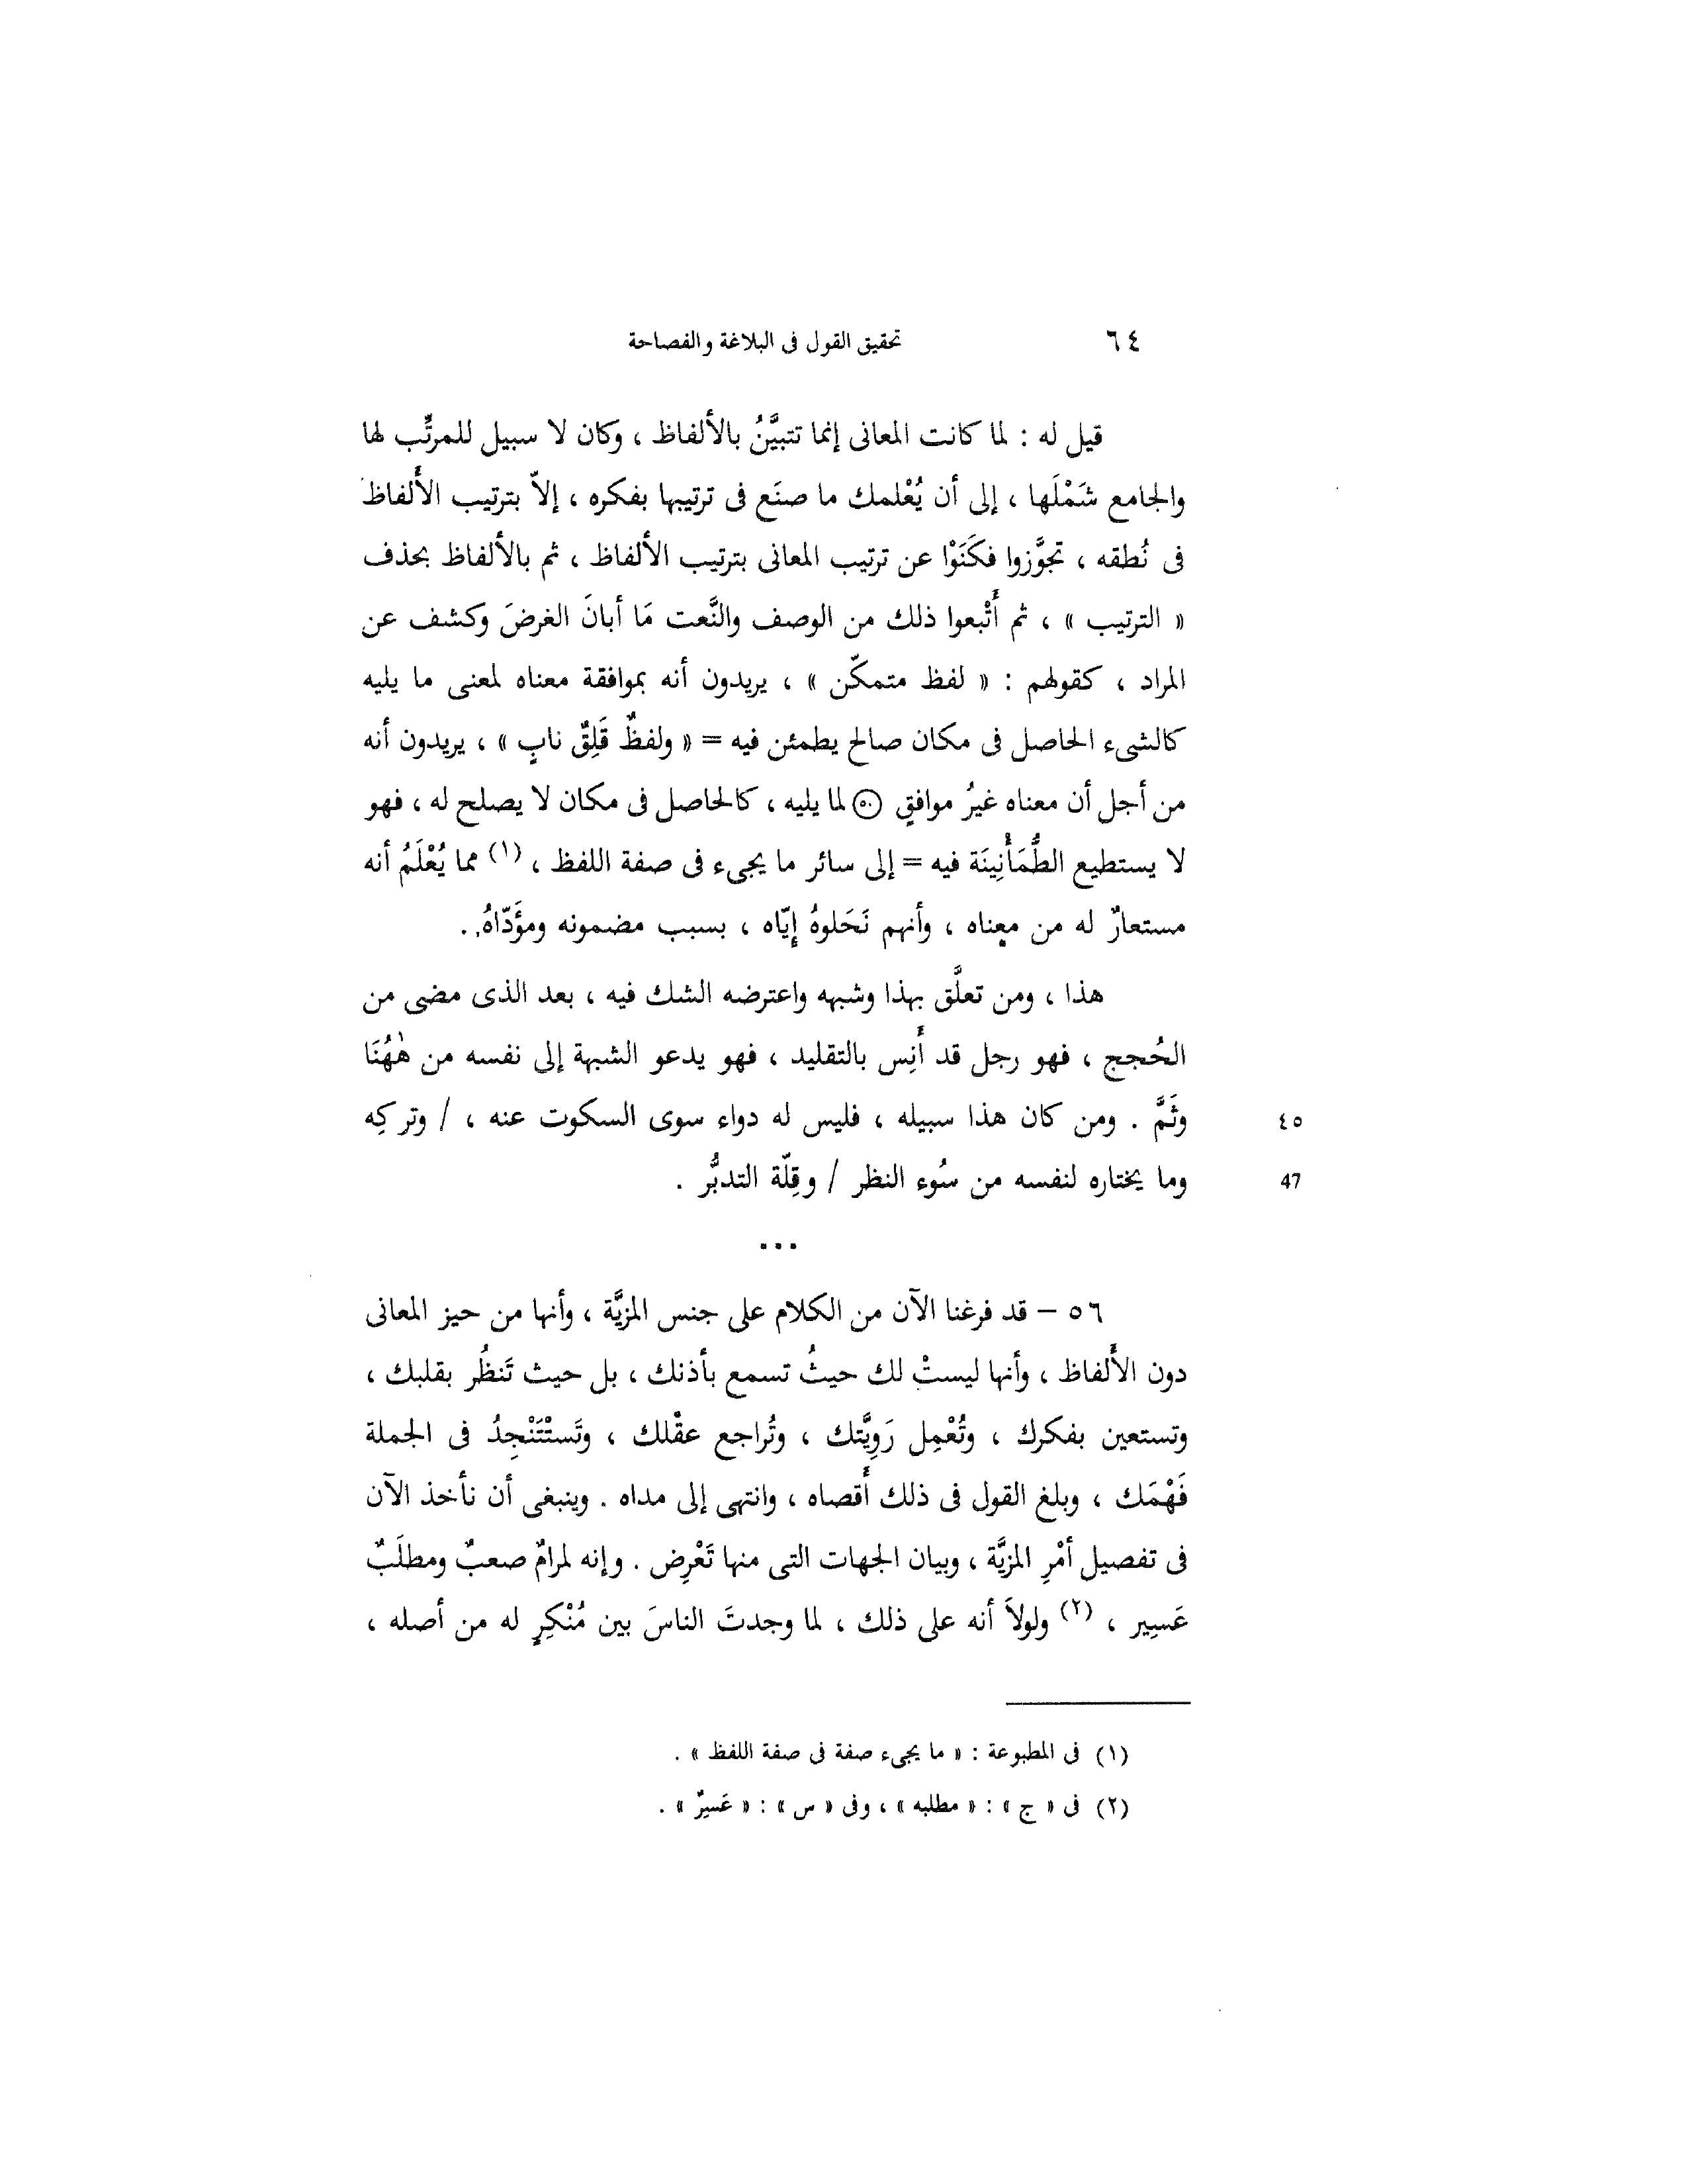 ٦٤ تحقيق القول فى البلاغة والفصاحة
قيل له : لما كانت المعانى إنما تتبيَّنُ بالألفاظ ، وكان لا سبيل للمرتِّب لها
والجامع شَمْلَها ، إلى أن يُعْلمك ما صنَع فى ترتيبها بفكره ، إلاّ بترتيب الألفاظ
فى نُطقه ، تجوَّزوا فكَنَوْا عن ترتيب المعانى بترتيب الألفاظ ، ثم بالألفاظ بحذف
« الترتيب » ، ثم أَتْبعوا ذلك من الوصف والنَّعت مَا أبانَ الغرضَ وكشف عن
المراد ، كقولهم : « لفظ متمكّن » ، يريدون أنه بموافقة معناه لمعنى ما يليه
كالشىء الحاصل فى مكان صالح يطمئن فيه = « ولفظٌ قَلِقٌ نابٍ » ، يريدون أنه
من أجل أن معناه غيرُ موافقٍ ۝٥٠ لما يليه ، كالحاصل فى مكان لا يصلح له ، فهو
لا يستطيع الطُّمَأْنِينَة فيه = إلى سائر ما يجىء فى صفة اللفظ ، (١) مما يُعْلَمُ أنه
مستعارٌ له من معناه ، وأنهم نَحَلوهُ إيّاه ، بسبب مضمونه ومؤَدّاهُ .
هذا ، ومن تعلَّق بهذا وشبهه واعترضه الشك فيه ، بعد الذى مضى من
الحُجج ، فهو رجل قد أَنِس بالتقليد ، فهو يدعو الشبهة إلى نفسه من هٰهُنَا
وثَمَّ . ومن كان هذا سبيله ، فليس له دواء سوى السكوت عنه ، / وتركِه ٤٥
وما يختاره لنفسه من سُوء النظر / وقِلّة التدبُّر . 47
...
٥٦ – قد فرغنا الآن من الكلام على جنس المزيَّة ، وأنها من حيز المعانى
دون الأَلفاظ ، وأنها ليستْ لك حيثُ تسمع بأذنك ، بل حيث تَنظُر بقلبك ،
وتستعين بفكرك ، وتُعْمِل رَوِيَّتك ، وتُراجع عقْلك ، وتَستْتَنْجِدُ فى الجملة
فَهْمَك ، وبلغ القول فى ذلك أَقصاه ، وانتهى إلى مداه . وينبغى أن نأخذ الآن
فى تفصيل أمْرِ المزيَّة ، وبيان الجهات التى منها تَعْرِض . وإنه لمرامٌ صعبٌ ومطلَبٌ
عَسِير ، (٢) ولولاَ أنه على ذلك ، لما وجدتَ الناسَ بين مُنْكِرٍ له من أصله ،
(١) فى المطبوعة : « ما يجىء صفة فى صفة اللفظ » .
(٢) فى « ج » : « مطلبه » ، وفى « س » : « عَسيرٌ » .